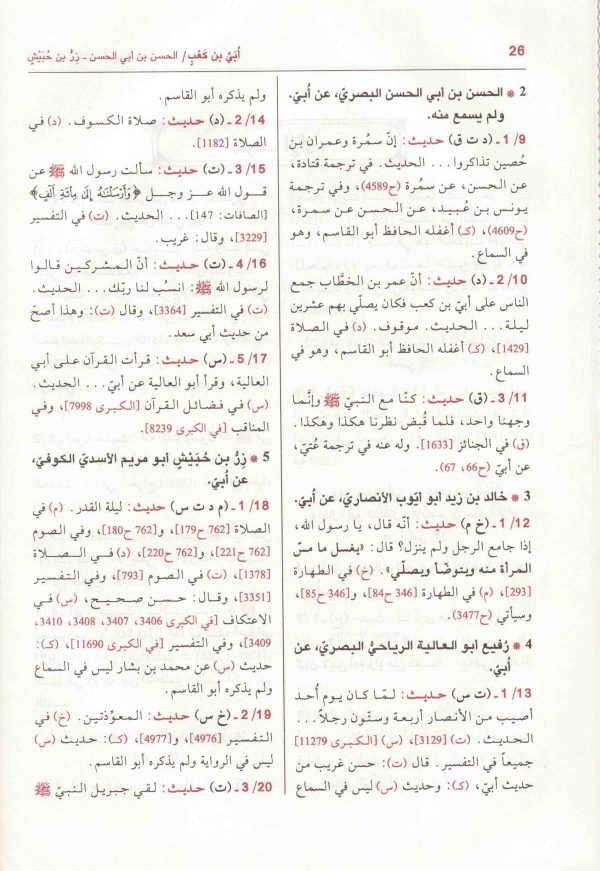 26
أُبَيّ بن كَعْبٍ/ الحسن بن أبي الحسن ـ زِرُّ بن حُبَيْشٍ
2 * الحسن بن أبي الحسن البصريّ، عن أُبيّ.
ولم يسمع منه.
9/ 1 ـ (د ت ق) حديث: إنّ سمُرة وعمران بن
حُصين تذاكروا... الحديث. في ترجمة قتادة،
عن الحسن، عن سمُرة (ح4589)، وفي ترجمة
يونس بن عُبيد، عن الحسن عن سمرة،
(ح4609)، (كـ) أغفله الحافظ أبو القاسم، وهو
في السماع.
10/ 2 ـ (د) حديث: أنّ عمر بن الخطَّاب جمع
الناس على أبيّ بن كعب فكان يصلّي بهم عشرين
ليلة... الحديث. موقوف. (د) في الصلاة
[1429]، (كـ) أغفله الحافظ أبو القاسم، وهو في
السماع.
11/ 3 ـ (ق) حديث: كنّا مع النبيّ ﷺ وإنَّما
وجهنا واحد، فلما قُبض نظرنا هكذا وهكذا.
(ق) في الجنائز [1633]. وله عنه في ترجمة عُتيّ،
عن أبيّ (ح66، 67).
3 * خالد بن زيد أبو أيّوب الأنصاريّ، عن أُبيّ.
12/ 1 ـ (خ م) حديث: أنّه قال، يا رسول الله،
إذا جامع الرجل ولم ينزل؟ قال: «يغسل ما مسّ
المرأة منه ويتوضّأ ويصلّي». (خ) في الطهارة
[293]، (م) في الطهارة [346 ح84]، و[346 ح85]،
وسيأتي (ح3477).
4 * رُفيع أبو العالية الرياحيُّ البصريّ، عن
أُبيّ.
13/ 1 ـ (ت س) حديث: لمّا كان يوم أُحد
أصيب من الأنصار أربعة وستّون رجلاً...
الحديث. (ت) [3129]، (س) [الكبرى 11279]
جميعاً في التفسير. قال (ت): حسن غريب من
حديث أبيّ، (كـ): وحديث (س) ليس في السماع
ولم يذكره أبو القاسم.
14/ 2 ـ (د) حديث: صلاة الكسوف. (د) في
الصلاة [1182].
15/ 3 ـ (ت) حديث: سألت رسول الله ﷺ عن
قول الله عز وجل ﴿وَأَرْسَلْنَٰهُ إِلَىٰ مِا۟ئَةِ أَلْفٍ﴾
[الصافات: 147]... الحديث. (ت) في التفسير
[3229]، وقال: غريب.
16/ 4 ـ (ت) حديث: أنّ المشركين قالوا
لرسول الله ﷺ: انسبْ لنا ربّك... الحديث.
(ت) في التفسير [3364]، وقال (ت): وهذا أصحّ
من حديث أبي سعد.
17/ 5 ـ (س) حديث: قرأت القرآن على أبي
العالية، وقرأ أبو العالية عن أبيّ... الحديث.
(س) في فضائل القرآن [الكبرى 7998]، وفي
المناقب [في الكبرى 8239].
5 * زِرُّ بن حُبَيْشٍ أبو مريم الأسديّ الكوفيّ،
عن أُبيّ.
18/ 1 ـ (م د ت س) حديث: ليلة القدر. (م) في
الصلاة [762 ح179]، و[762 ح180]، وفي الصوم
[762 ح221]، و[762 ح220]، (د) في الصلاة
[1378]، (ت) في الصوم [793]، وفي التفسير
[3351]، وقال: حسن صحيح، (س) في
الاعتكاف [في الكبرى 3406، 3407، 3408، 3410،
3409]، وفي التفسير [في الكبرى 11690]، (كـ):
حديث (س) عن محمد بن بشار ليس في السماع
ولم يذكره أبو القاسم.
19/ 2 ـ (خ س) حديث: المعوِّذتين. (خ) في
التفسير [4976]، و[4977]، (كـ): حديث (س)
ليس في الرواية ولم يذكره أبو القاسم.
20/ 3 ـ (ت) حديث: لقي جبريل النبيّ ﷺ